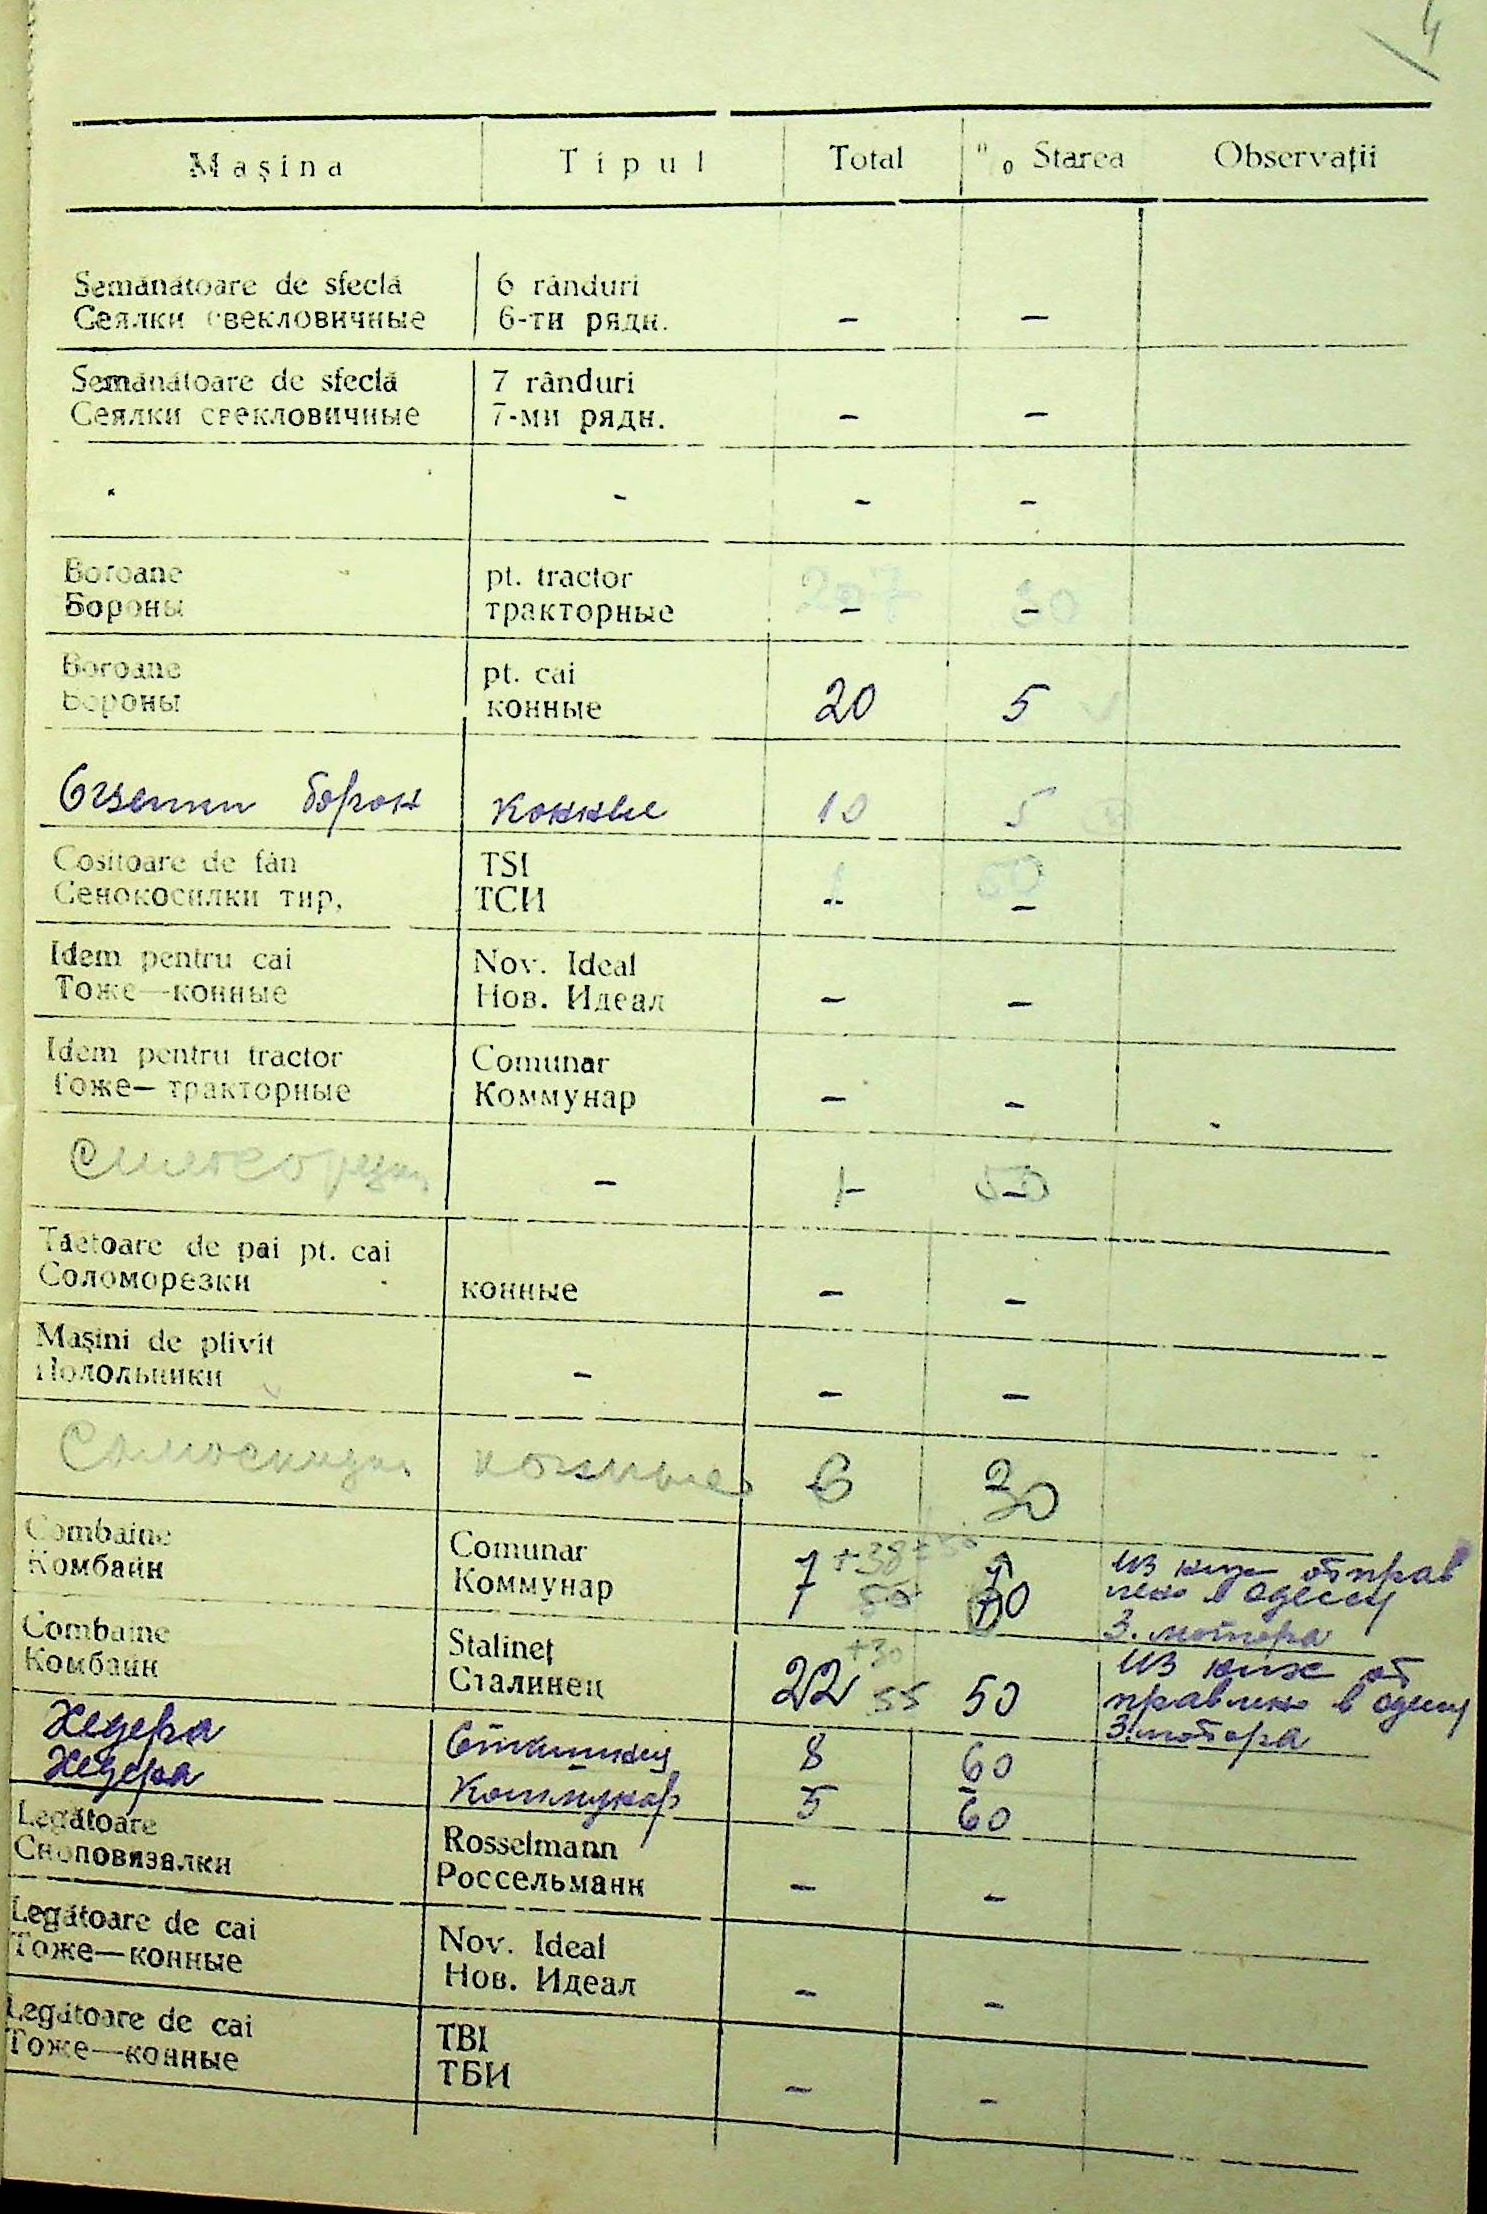 4
Mașina Tipul Total % Starea Observații
Semănătoare de sfeclă 6 rânduri
Сеялки свекловичные 6-ти рядн. – –
Semănătoare de sfeclă 7 rânduri
Сеялки свекловичные 7-ми рядн. – –
– – –
Boroane pt. tractor 207 30
Бороны тракторные – –
Boroane pt. cai
Бороны конные 20 5
борон конные 10 5
Cositoare de fân TSI 50
Сенокосилки тир. ТСИ – –
Idem pentru cai Nov. Ideal
Тоже—конные Нов. Идеал – –
Idem pentru tractor Comunar
Тоже—тракторные Коммунар – –
Силосорезки – 1 50
Tăetoare de pai pt. cai
Соломорезки конные – –
Mașini de plivit
Полольники – – –
Самоскидки конные 6 30
Combaine Comunar +38=
Комбайн Коммунар 7
Из них отправ
лено в Одессу
3. мотора
Combaine Stalineț +30
Комбайн Сталинец 22 55 50
Из них от
правлено в Одессу
3. мотора
Хедера Сталинец 8 60
Хедера Коммунар 5 60
Legătoare Rosselmann
Сноповязалки Россельманн – –
Legătoare de cai Nov. Ideal
Тоже—конные Нов. Идеал – –
Legătoare de cai TBI
Тоже—конные ТБИ – –